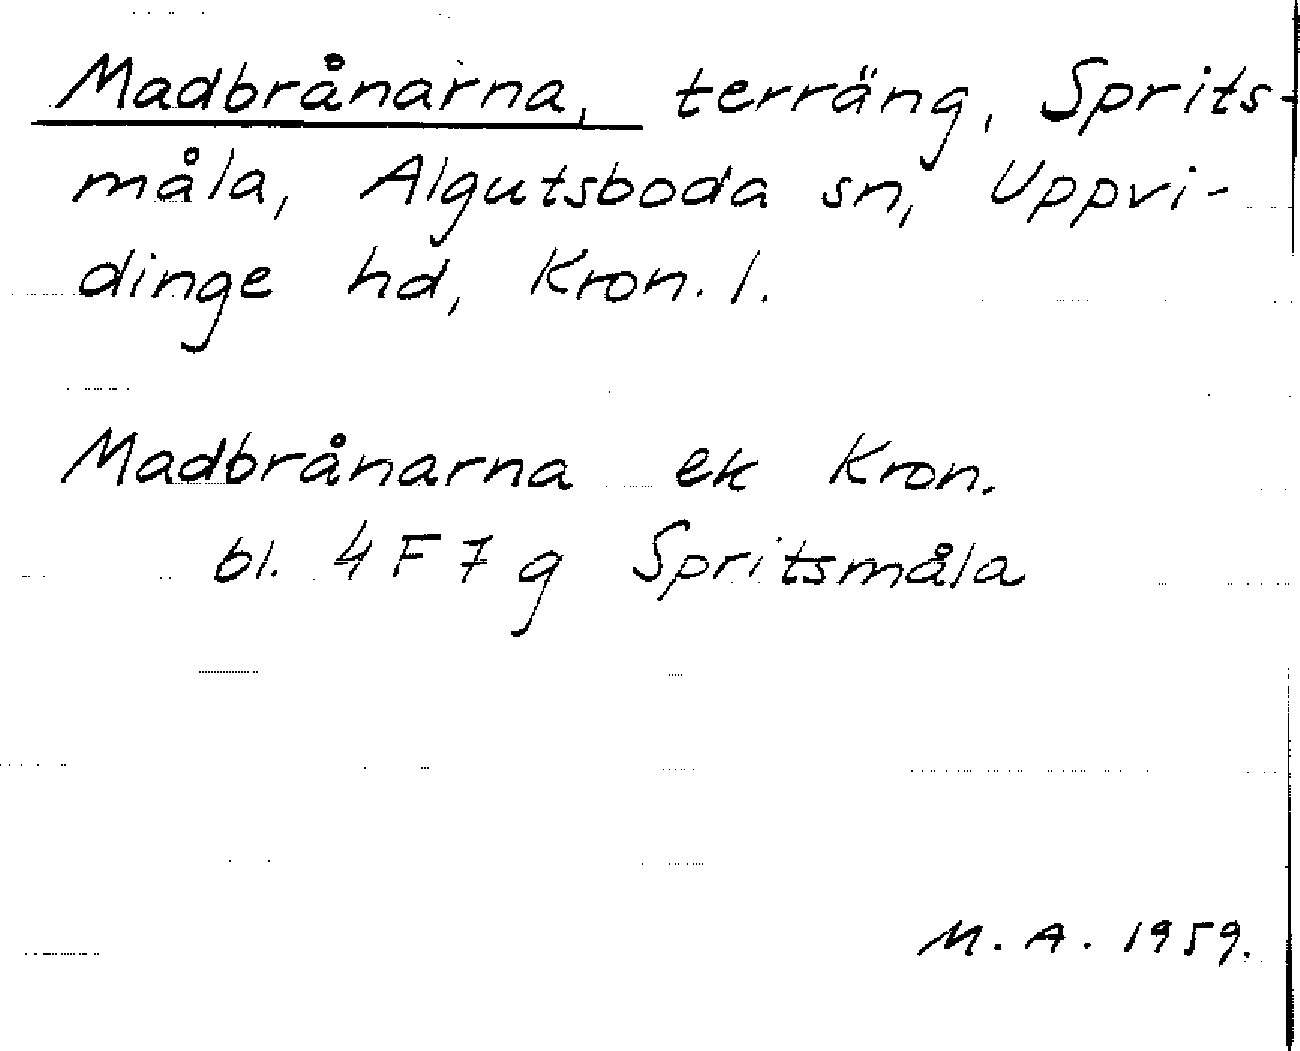 Madbrånarna, terräng, Sprits-
måla, Algutsboda sn, Uppvi-
dinge hd, Kron. l.
Madbrånarna ek Kron.
bl. 4 F 7 g Spritsmåla
M. A. 1959.